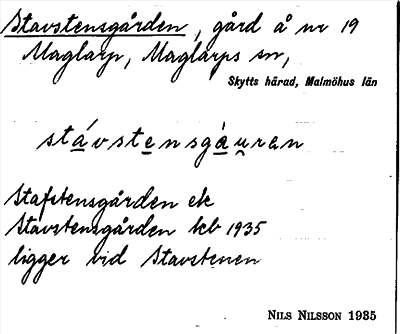 Stavstensgården, gård å nr 19
Maglarp, Maglarps sn,
Skytts härad, Malmöhus län
stávstensgàuran
Stafstensgården ek
Stavstensgården kb 1935
ligger vid Stavstenen
NILS NILSSON 1935